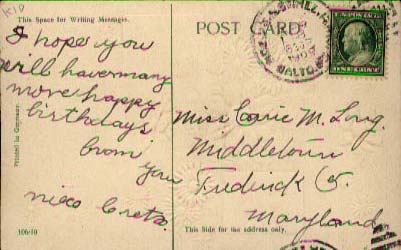 K10
This Space for Writing Messages.
POST CARD
I hope you
will have many
more happy
birthdays
from
you
niece Creta
Printed in Germany
106/10
BALTO.
ONE CENT
Miss Carrie M. Long.
Middletown
Fredrick Co.
Maryland
This Side for the address only.